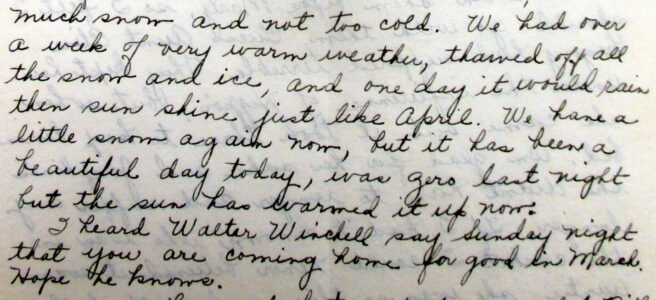 much snow and not too cold. We had over
a week of very warm weather, thawed off all
the snow and ice, and one day it would rain
then sun shine just like April. We have a
little snow again now, but it has been a
beautiful day today, was zero last night
but the sun has warmed it up now.
I heard Walter Winchell say Sunday night
that you are coming home for good in March.
Hope he knows.